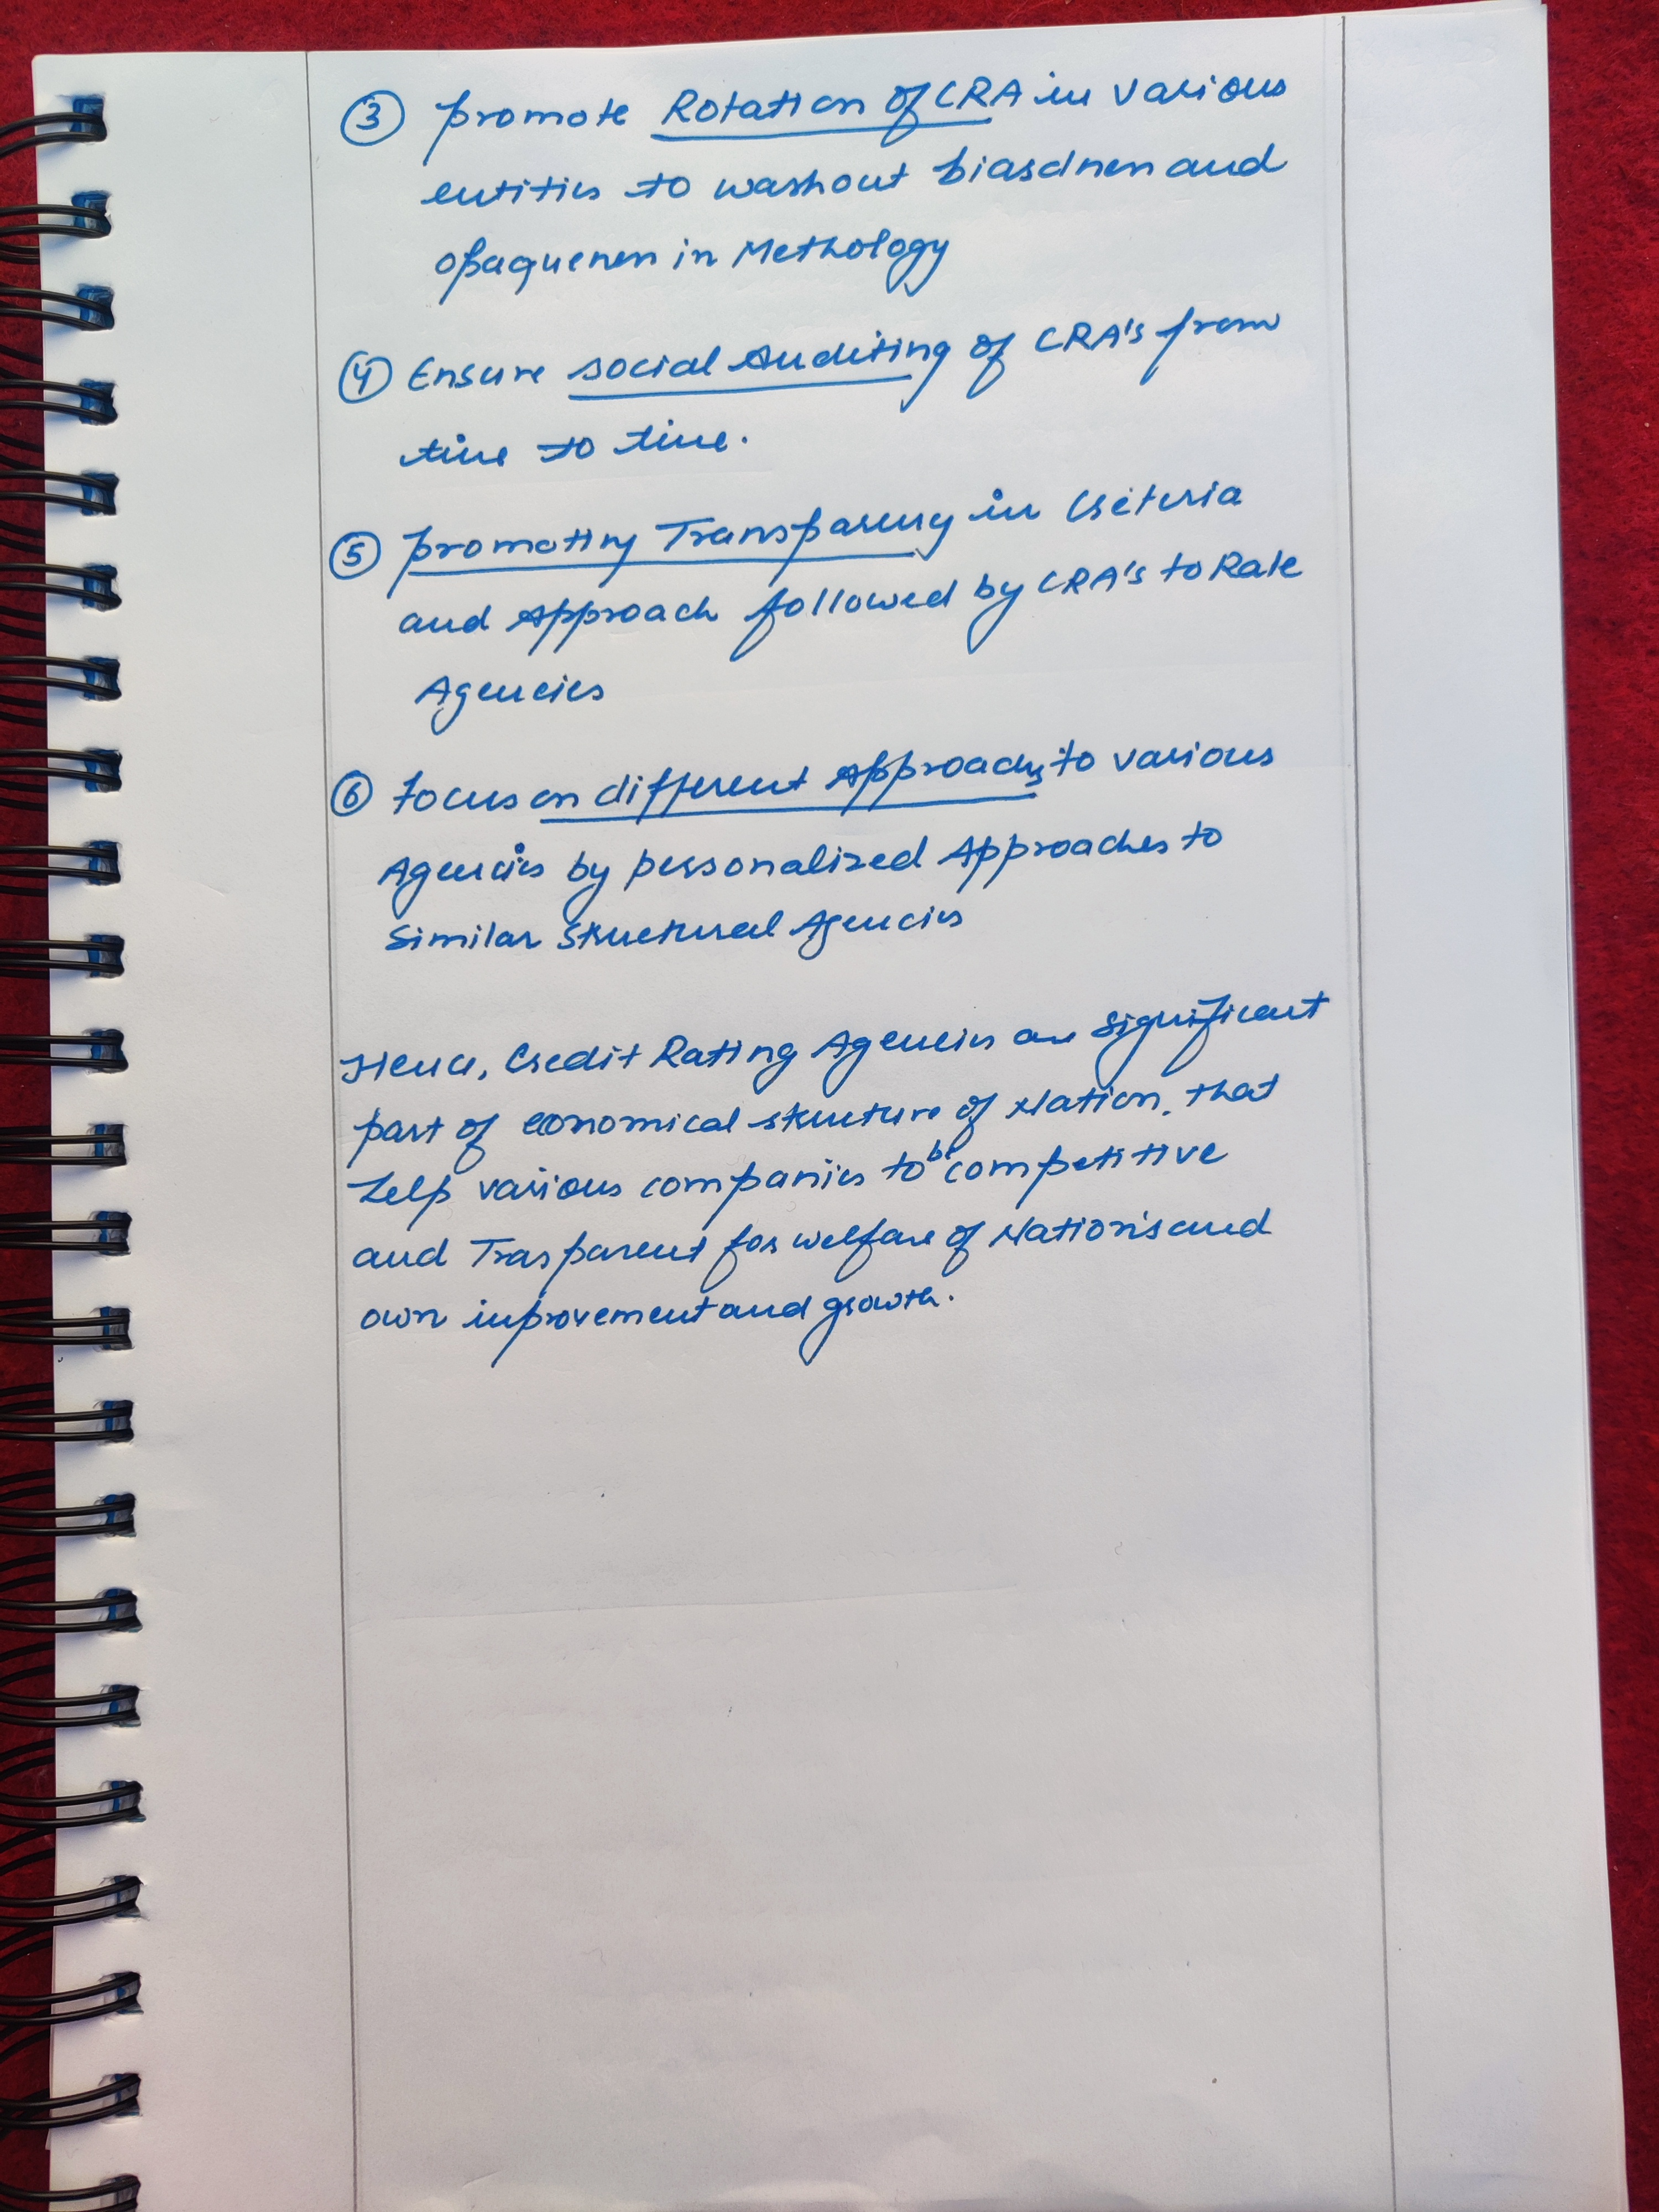 ③ promote Rotation of CRA in various
entities to washout biasdness and
opaqueness in Methology
④ Ensure social Auditing of CRA's from
time to time.
⑤ promoting Transparency in Criteria
and Approach followed by CRA's to Rate
Agencies
⑥ Focus on different Approachs to various
Agencies by personalized Approaches to
Similar Structural Agencies
Hence, Credit Rating Agencies are Significant
part of economical structure of Nation, that
help various companies to be competitive
and Trasparent for welfare of Nation's and
own improvement and growth.